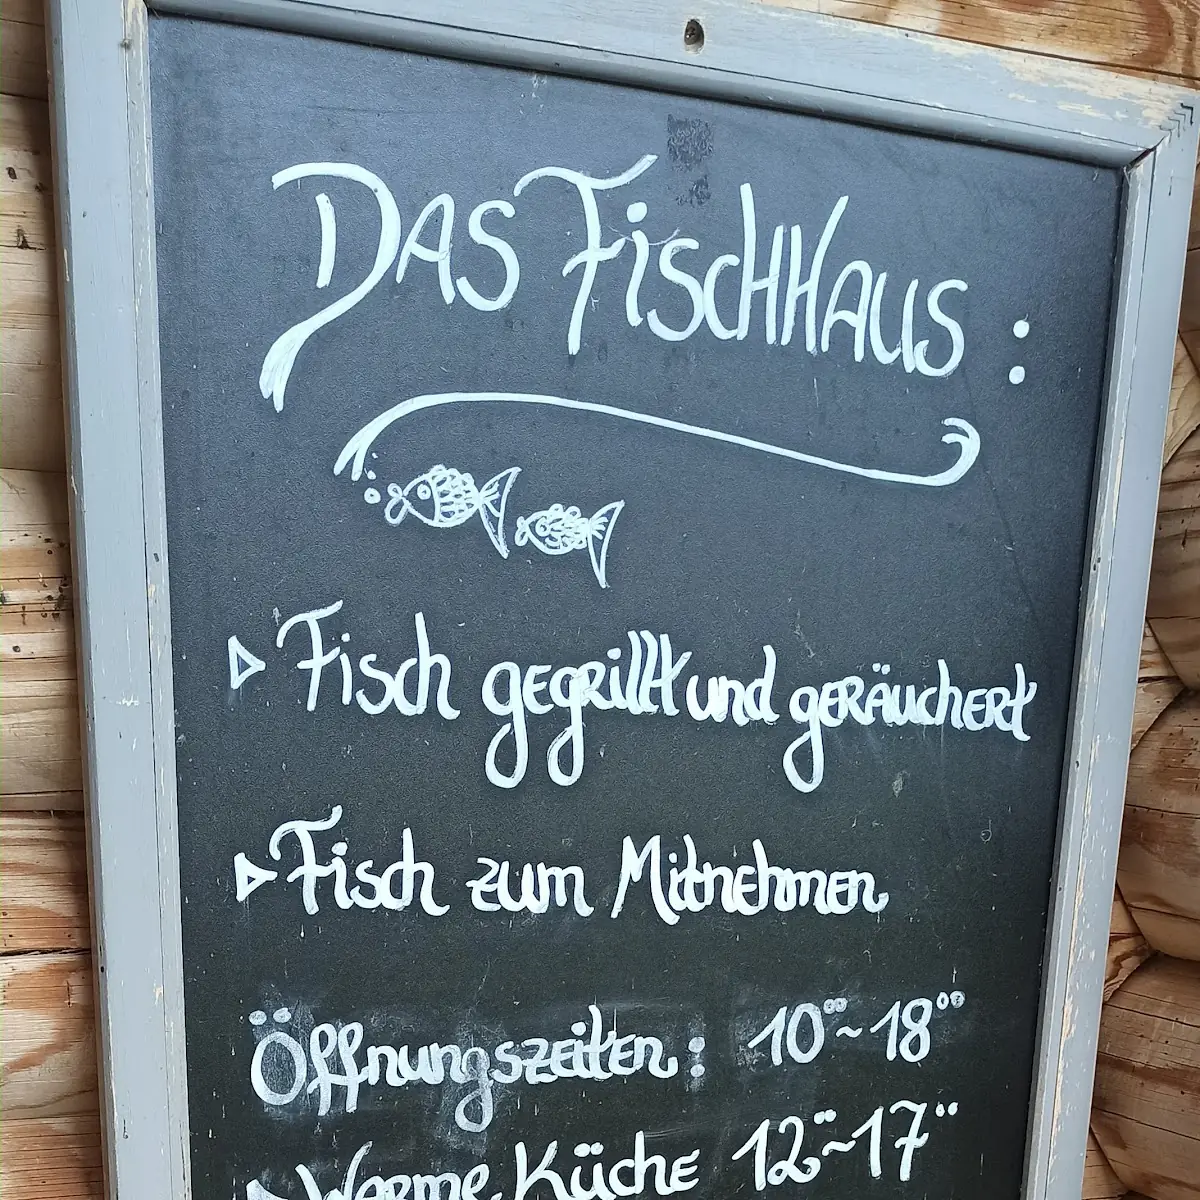 DAS FISCHHAUS :
▷ Fisch gegrillt und geräuchert
▷ Fisch zum Mitnehmen
Öffnungszeiten: 10°°~18°°
▷ Warme Küche 12°°~17°°